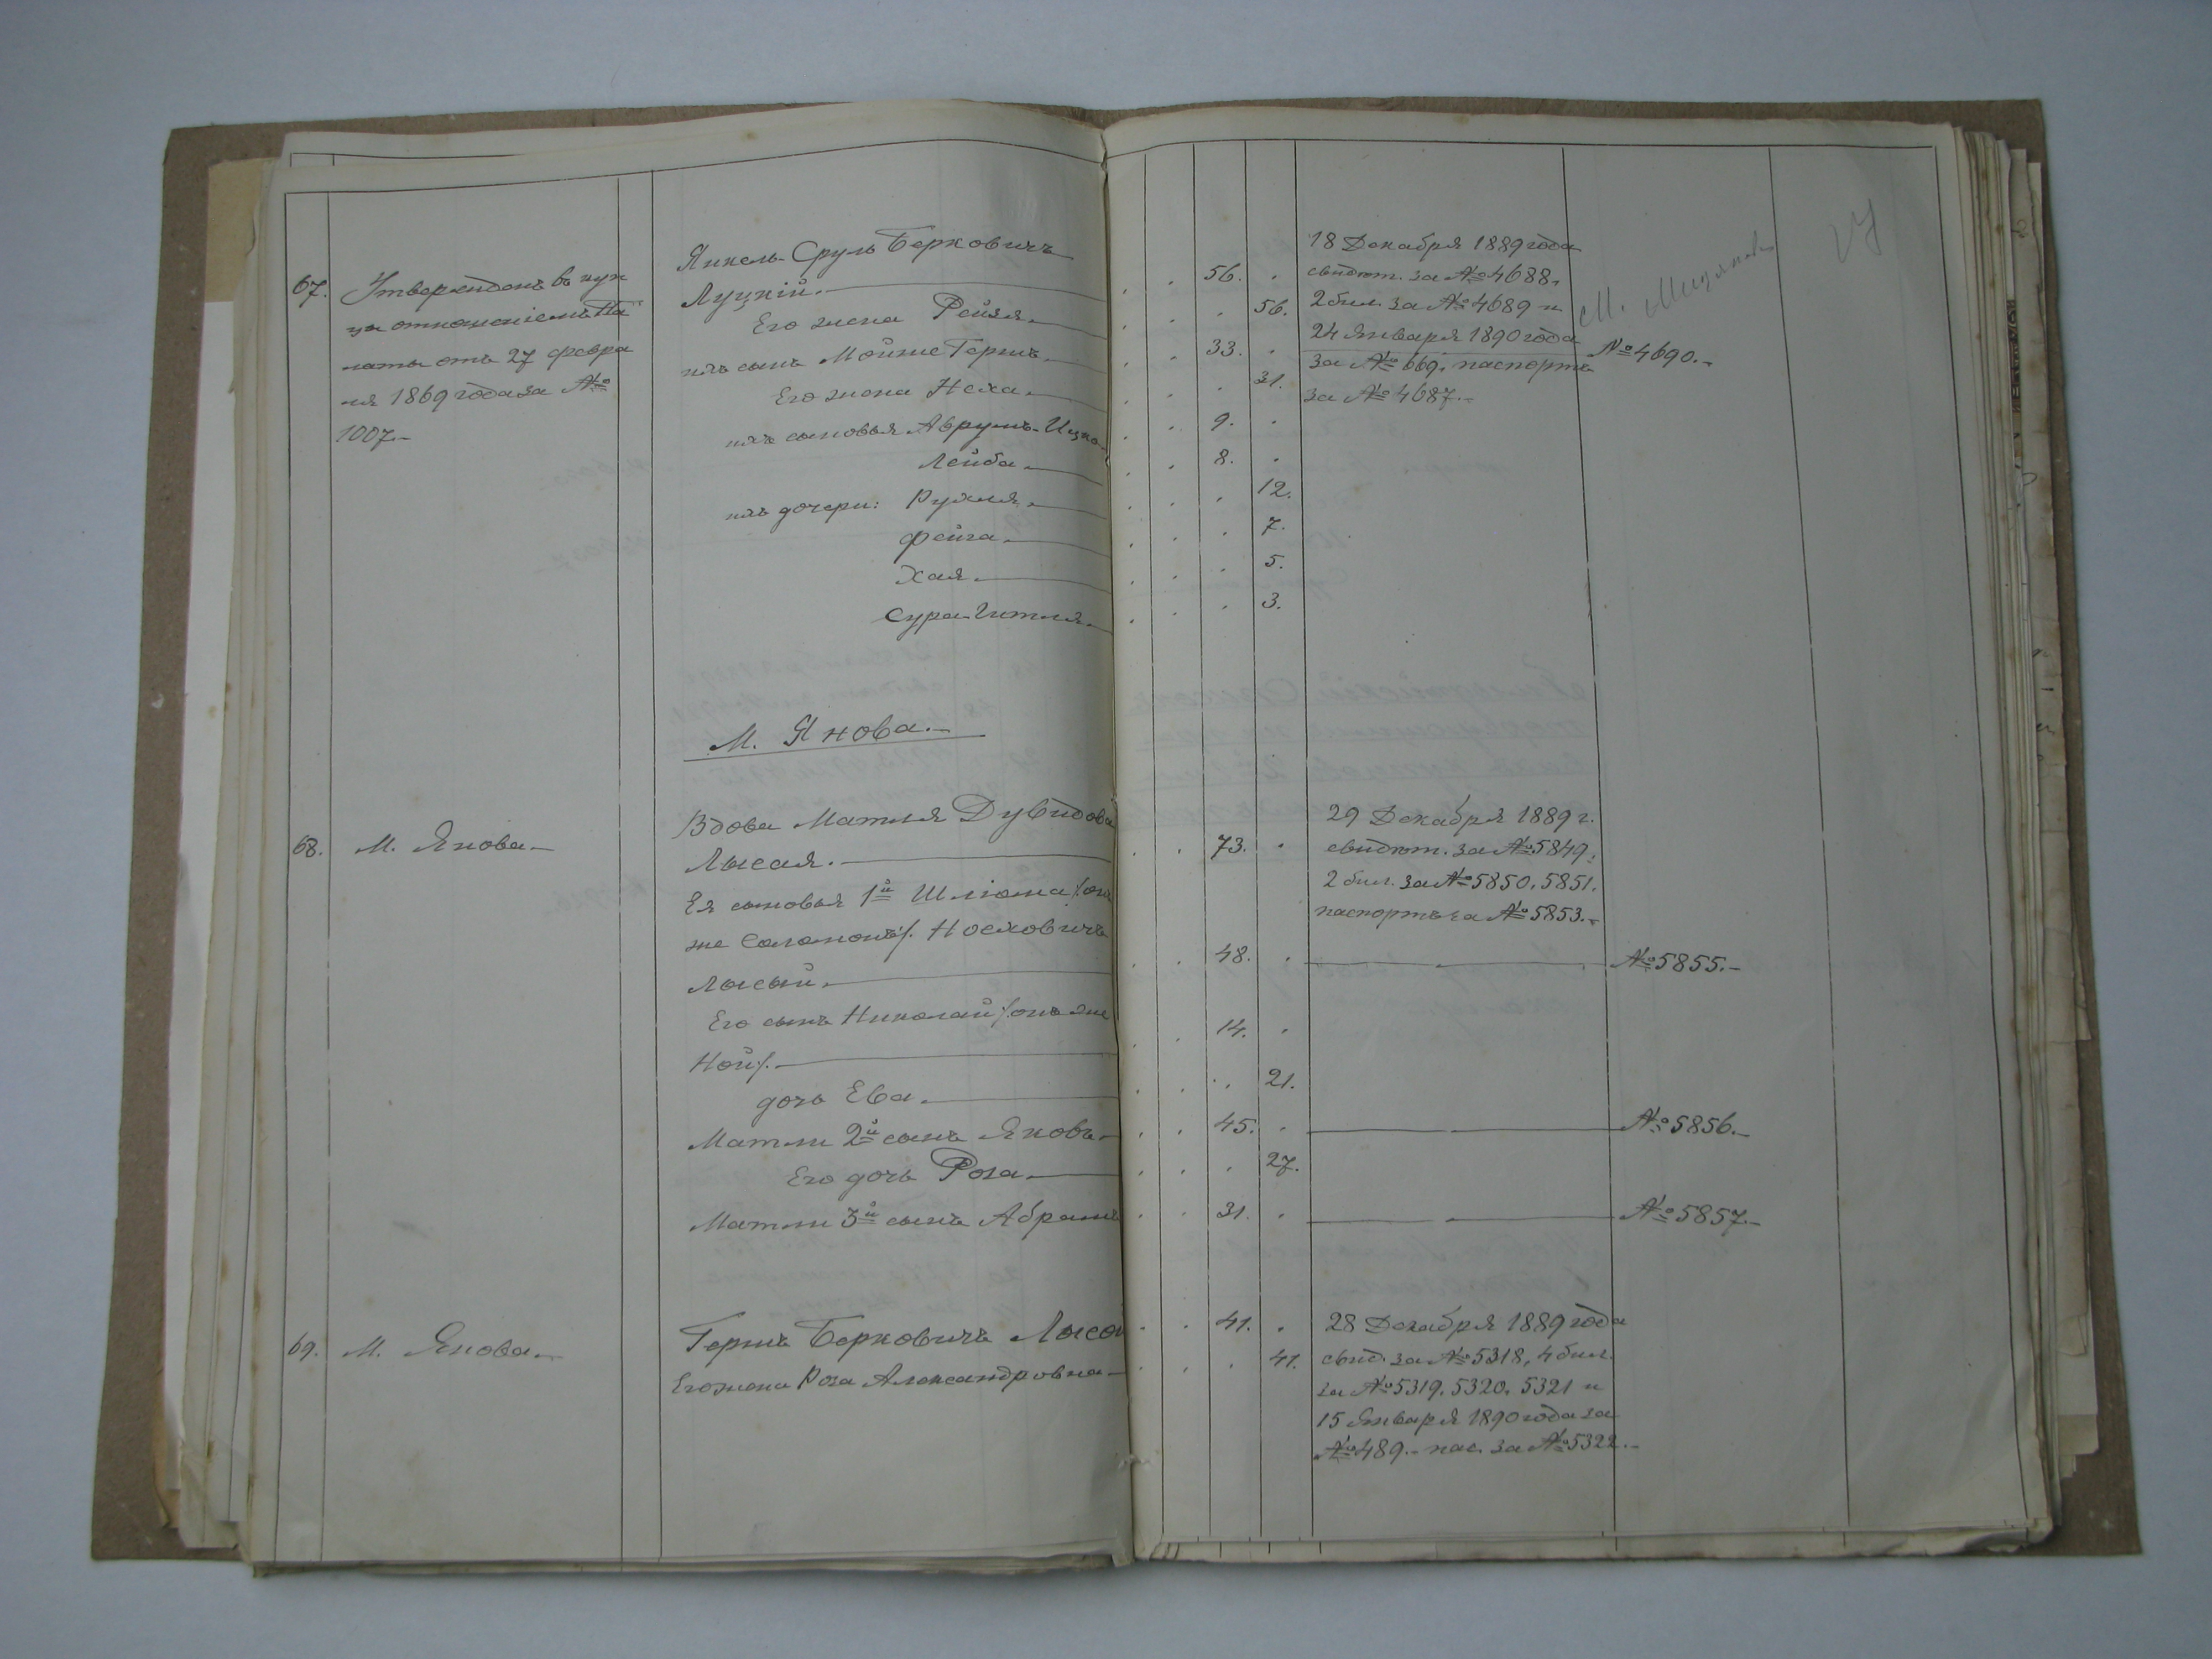 67.
Утвержденъ въ куп
цы отношеніемъ Па
латы отъ 27 Февра
ля 1869 года за №
1007.-
Янкель-Сруль Берковичъ
Луцкій.
Его жена Рейзя.
ихъ сынъ Мойше Гершъ.
Его жена Неха.
ихъ сыновья Аврумъ-Ицко
Лейба.
ихъ дочери: Рухля.
Фейга.
Хая.
Сура-Гитля.
М. Янова.-
68.
М. Янова-
Вдова Матля Дувидова
Лысая.
Ея сыновья 1й Шліома /:онъ
же Соломонъ:/. Носховичъ
Лысый.
Его сынъ Николай /:онъ же
Ной:/.
дочь Ева.
Матли 2й сынъ Яковъ.
Его дочь Роза.
Матли 3й сынъ Абрамъ
69.
М. Янова.
Гершъ Берковичъ Лысой
Его жена Роза Александровна-
56.
56.
33.
31.
9.
8.
12.
7.
5.
3.
18 Декабря 1889 года
свидѣт. за № 4688.
2 бил. за № 4689 и
24 Января 1890 года
за № 669. паспортъ
за № 4687.-
№ 4690.-
М.
73.
29 Декабря 1889 г.
свидѣт. за № 5849.
2 бил. за № 5850. 5851.
паспортъ за № 5853.-
48.
№ 5855.-
14.
21.
45.
№ 5856.-
27.
31.
№ 5857.-
41.
41.
28 Декабря 1889 года
свид. за № 5318, 4 бил.
за № 5319. 5320. 5321 и
15 Января 1890 года за
№ 489.- пас. за № 5322.-